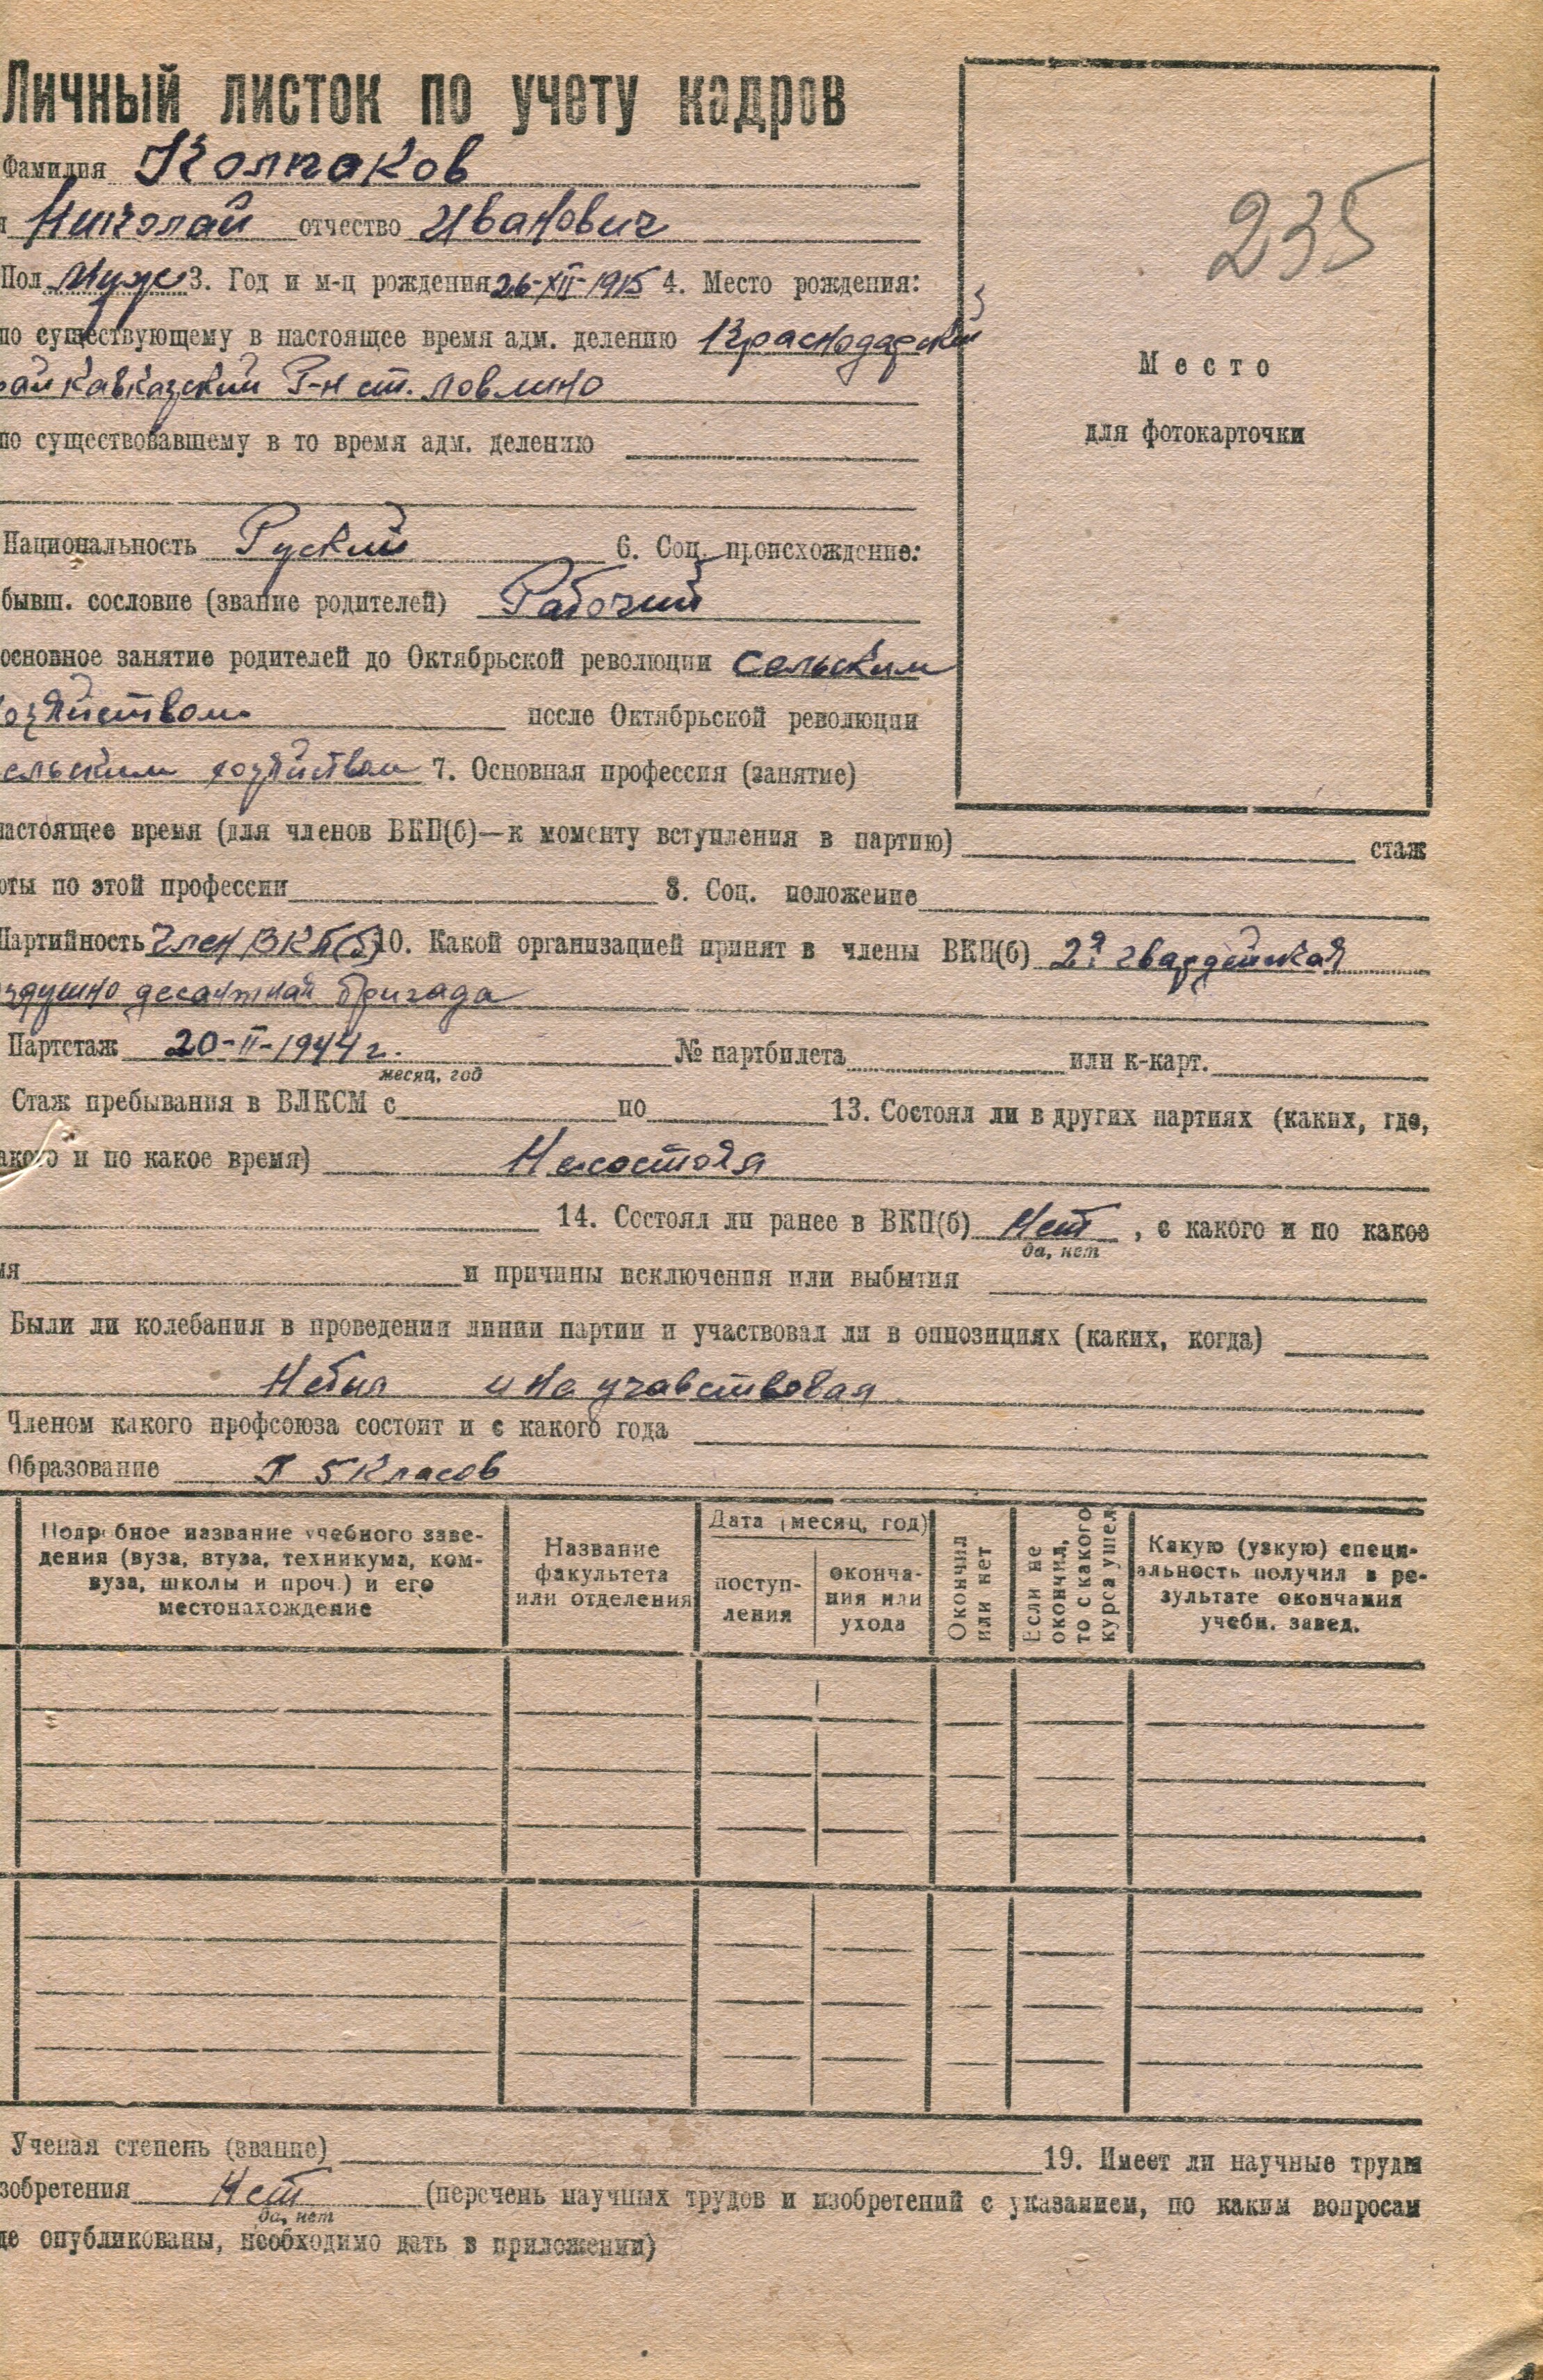 Личный листок по учету кадров
Фамилия Колпаков
Николай отчество Иванович
235
Пол Муж 3. Год и м-ц рождения 26-XII-1915 4. Место рождения:
по существующему в настоящее время адм. делению Краснодарский
рай кавказский Р-н ст. ловлино
Место
для фотокарточки
по существовавшему в то время адм. делению
Национальность Руский 6. Соц. происхождение:
бывш. сословие (звание родителей) Рабочий
основное занятие родителей до Октябрьской революции сельским
озяйством после Октябрьской революции
ельским хозяйством 7. Основная профессия (занятие)
настоящее время (для членов ВКП(б)—к моменту вступления в партию) стаж
оты по этой профессии 8. Соц. положение
Партийность Член ВКП(б) 10. Какой организацией принят в члены ВКП(б) 2я гвардейская
здушно десантная бригада
Партстаж 20-II-1944 г. № партбилета или к-карт.
месяц, год
Стаж пребывания в ВЛКСМ с по 13. Состоял ли в других партиях (каких, где,
акого и по какое время) Несостоял
14. Состоял ли ранее в ВКП(б) Нет, с какого и по какое
да, нет
мя и причины исключения или выбытия
Были ли колебания в проведении линии партии и участвовал ли в оппозициях (каких, когда)
Небыл и не учавствовал
Членом какого профсоюза состоит и с какого года
Образование 5 Класов
Подробное название учебного заве-
дения (вуза, втуза, техникума, ком-
вуза, школы и проч.) и его
местонахождение
Название
факультета
или отделения
Дата (месяц, год)
поступ-
ления
оконча-
ния или
ухода
Окончил
или нет
Если не
окончил,
то с какого
курса ушел
Какую (узкую) специ-
альность получил в ре-
зультате окончания
учебн. завед.
Ученая степень (звание) 19. Имеет ли научные труды
зобретения Нет (перечень научных трудов и изобретений с указанием, по каким вопросам
да, нет
де опубликованы, необходимо дать в приложении)